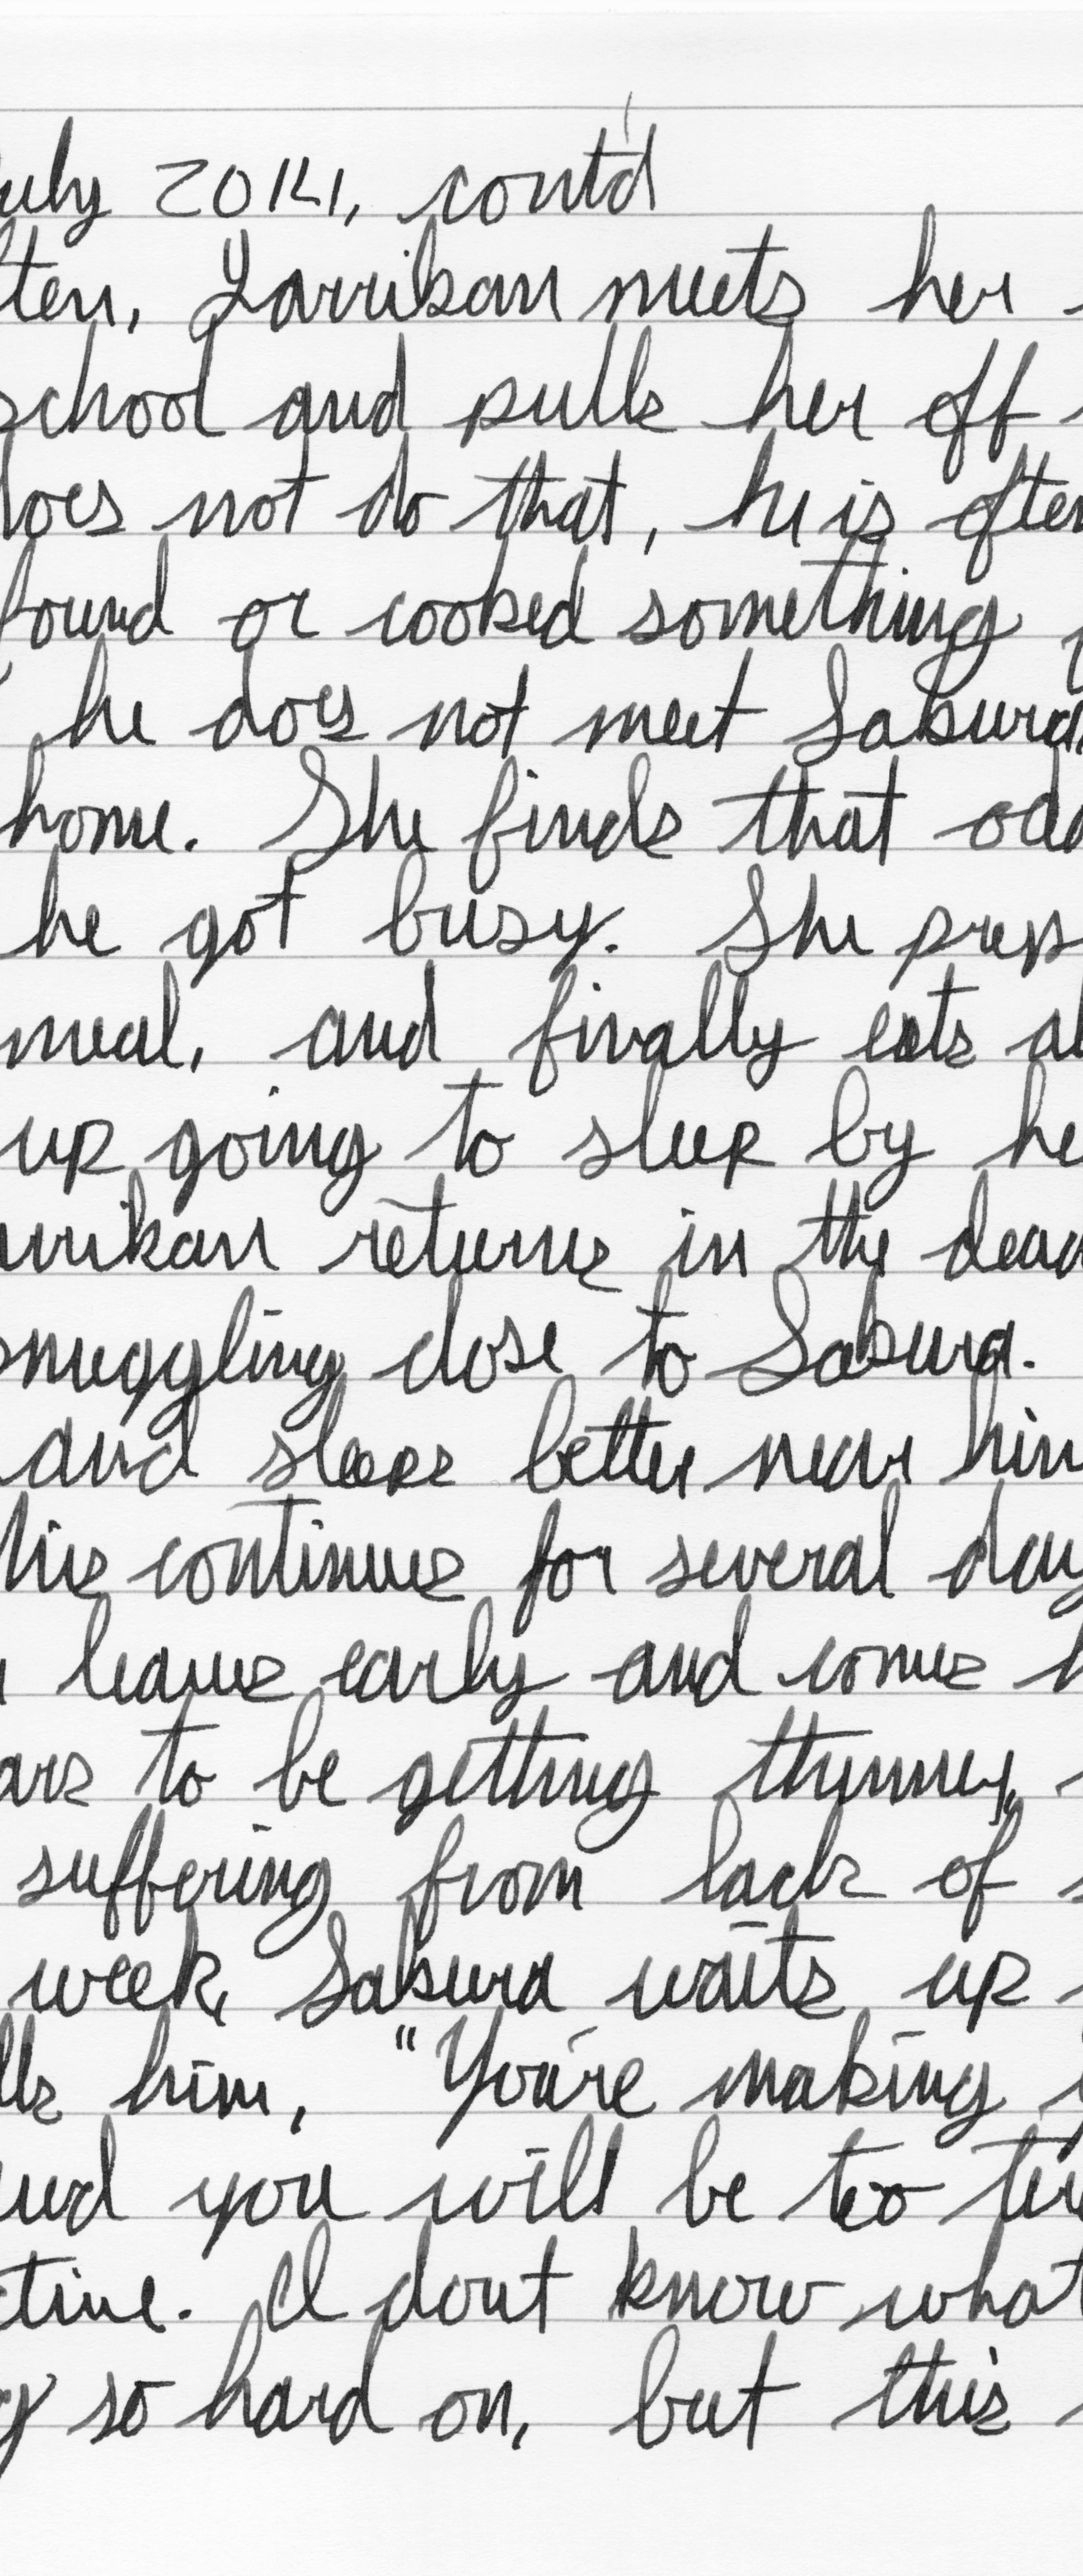 uly 2014, cont'd
ten, Yarrikan meets her
school and pulls her off
does not do that, he is often
found or cooked something
he does not meet Sakura
home. She finds that odd
he got busy. She prep
meal, and finally eats al
up going to sleep by he
rrikan returns in the dead
snuggling close to Sakura.
and sleeps better near him
his continues for several day
leaves early and comes h
ars to be getting thinner,
suffering from lack of
week, Sakura waits up
lls him, "You're making y
and you will be too tir
ctive. I don't know what
g so hard on, but this